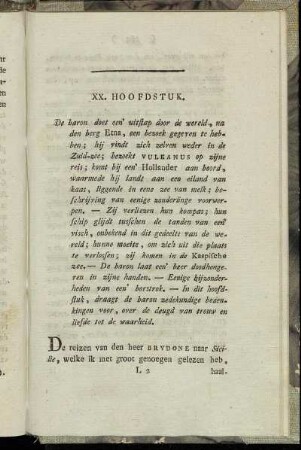 XX. HOOFDSTUK.
De baron doet een' uitstap door de wereld, na
den berg Etna, een bezoek gegeven te heb-
ben; hij vindt zich zelven weder in de
Zuid-zee; bezoekt VULKANUS op zijne
reis; komt bij een' Hollander aan boord,
waarmede hij landt aan een eiland van
kaas, liggende in eene zee van melk; be-
schrijving van eenige zonderlinge voorwer-
pen. — Zij verliezen hun kompas; hun
schip glijdt tusschen de tanden van een'
visch, onbekend in dit gedeelte van de we-
reld; hunne moeite, om zich uit die plaats
te verlossen; zij komen in de Kaspische
zee. — De baron laat een' beer doodhonge-
ren in zijne handen. — Eenige bijzonder-
heden van een' borstrok. — In dit hoofd-
stuk, draagt de baron zedekundige beden-
kingen voor, over de deugd van trouw en
liefde tot de waarheid.
De reizen van den heer BRYDONE naar Sici-
lie, welke ik met groot genoegen gelezen heb,
L 2 haal-